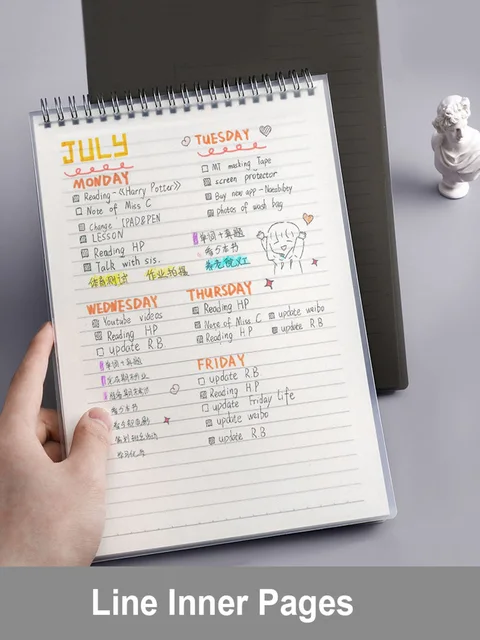 JULY
MONDAY
Reading-《Harry Potter》
Note of Miss C
Change IPAD&PEN
LESSON
Reading HP
Talk with sis.
TUESDAY
MT masking Tape
screen protector
Buy new app-Notability
photos of wash bag
单词+真题
WEDNESDAY
Youtube videos
Reading HP
update R.B
单词+真题
THURSDAY
Reading HP
Note of Miss C
Reading H.P
update weibo
update R.B
FRIDAY
update R.B
Reading H.P
update Friday Life
update weibo
update R.B
Line Inner Pages